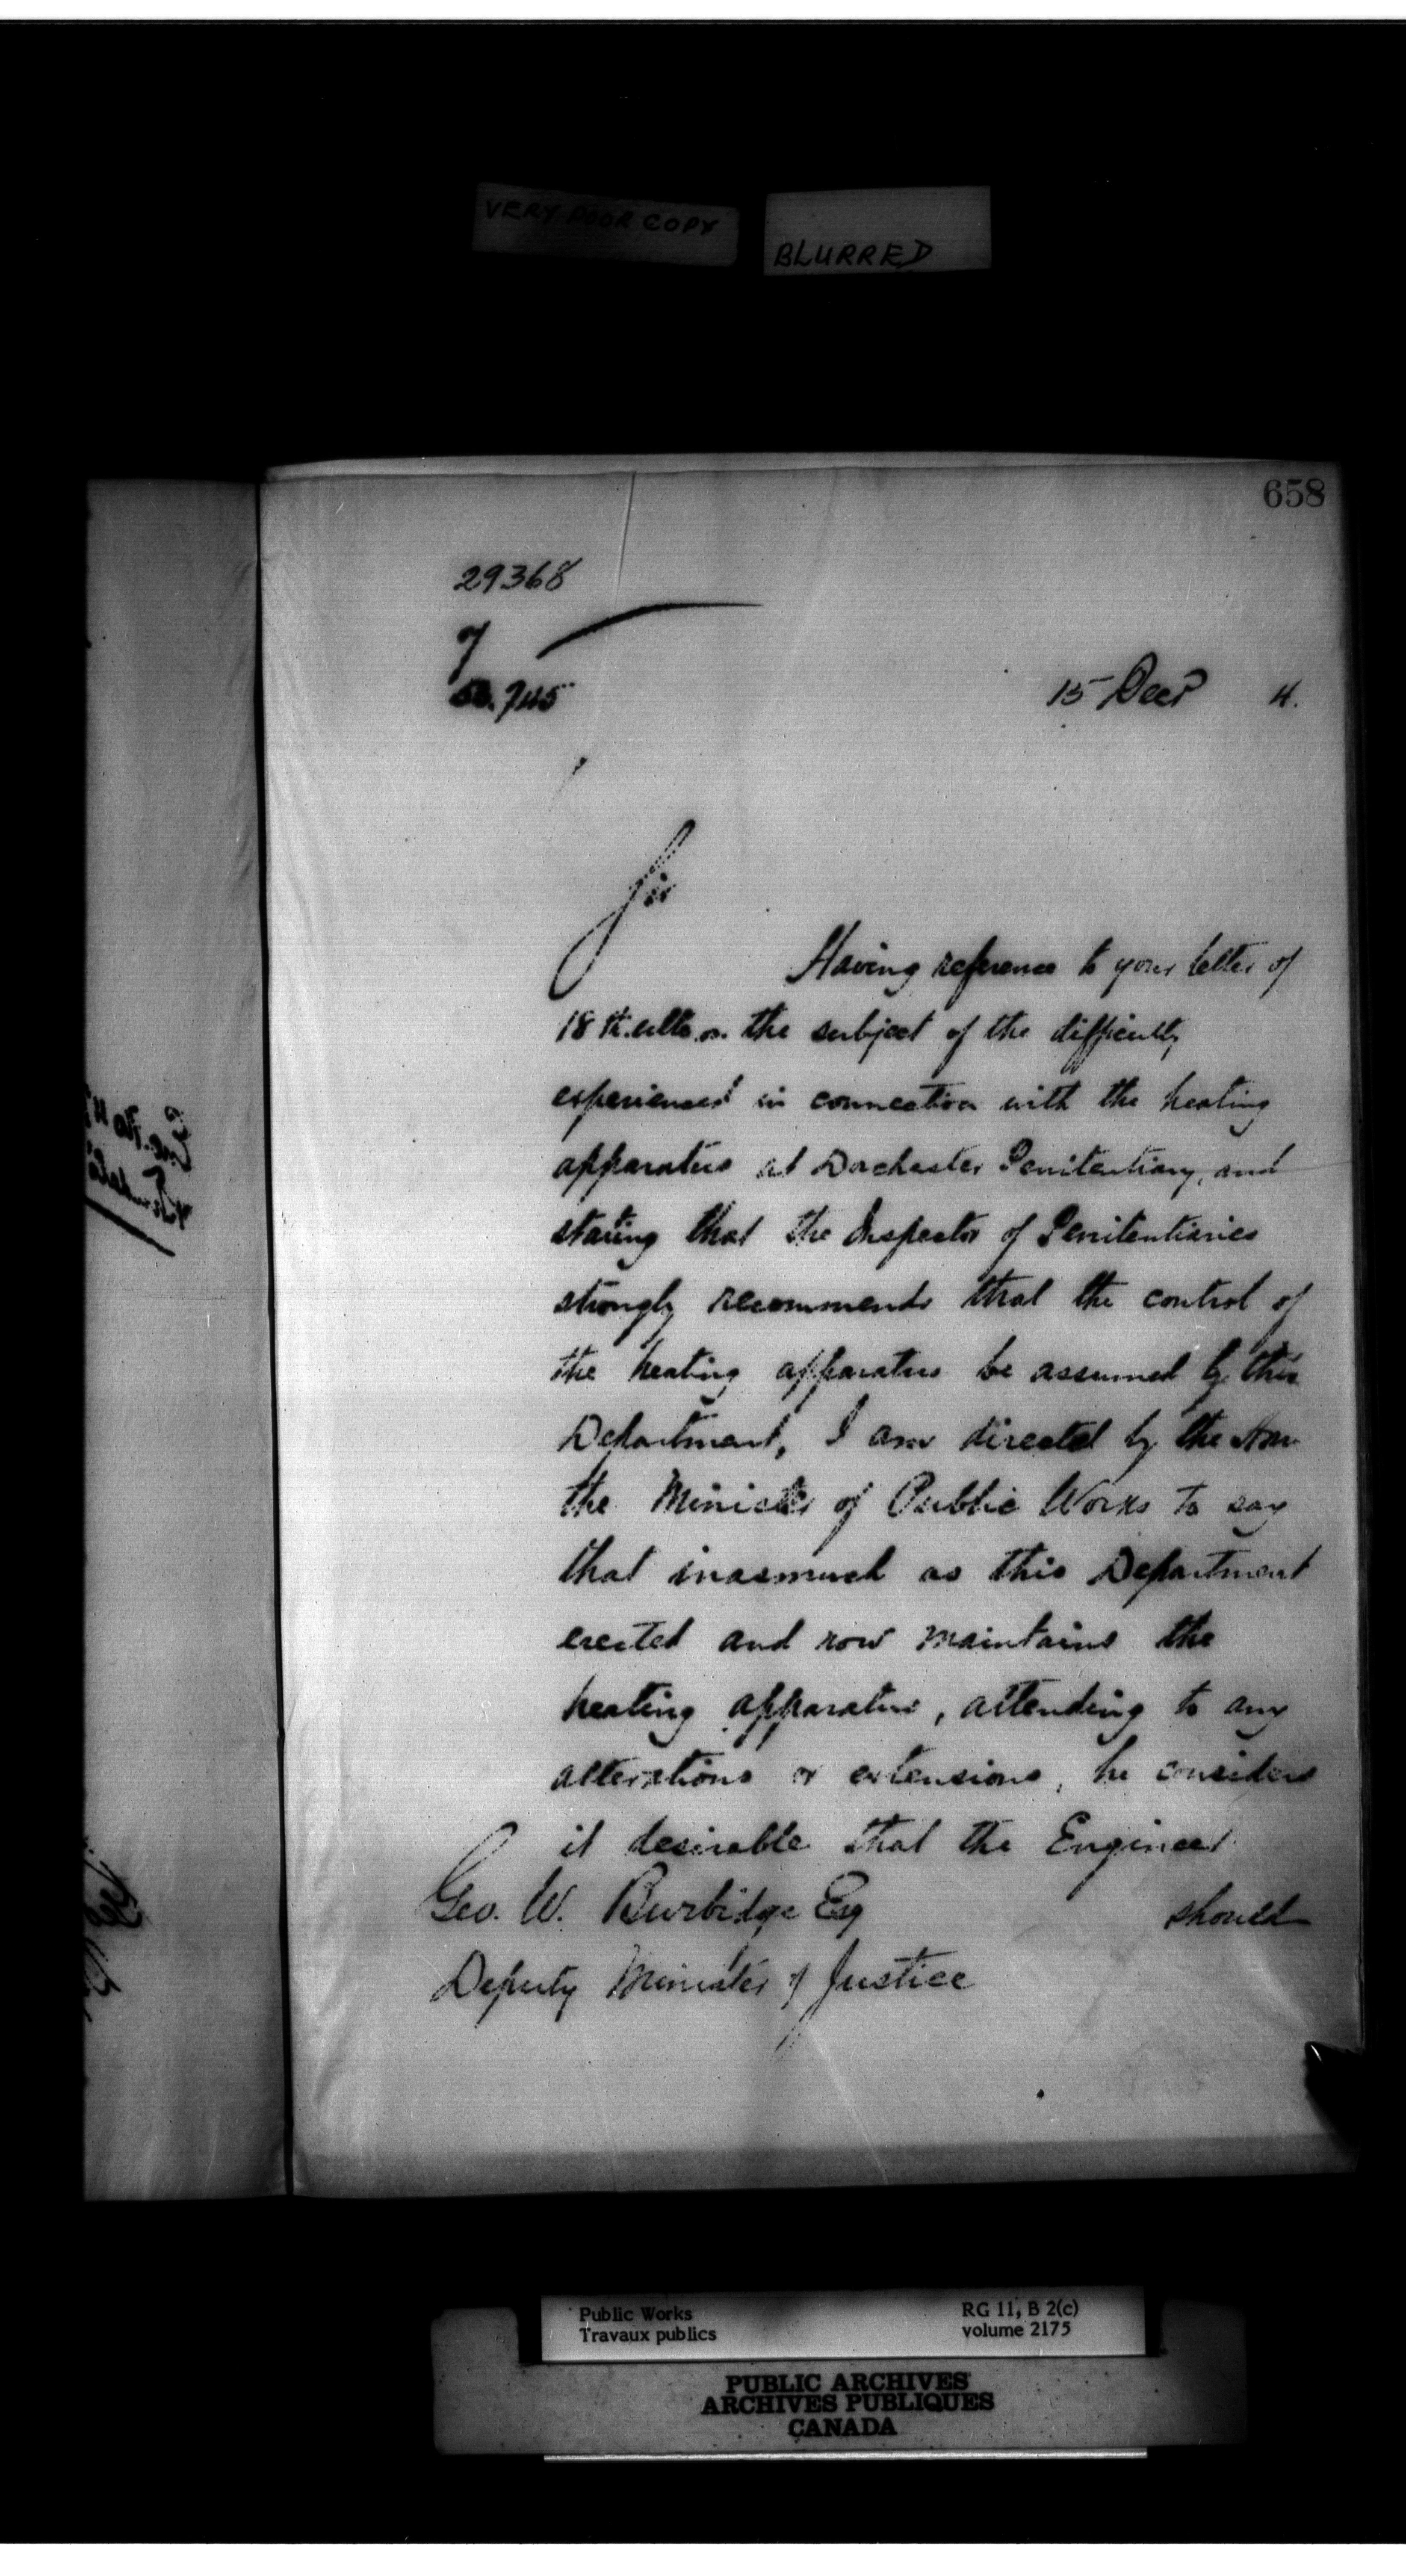 VERY POOR COPY
BLURRED
658
29368
of
15 Decr 4.
Sir
Having reference to your letter of
18th. ulto. on the subject of the difficulty
experienced in connection with the heating
apparatus at Dorchester Penitentiary, and
stating that the Inspector of Penitentiaries
strongly recommends that the control of
the heating apparatus be assumed by this
Department, I am directed by the Hon
the Minister of Public Works to say
that inasmuch as this Department
erected and now maintains the
heating apparatus, attending to any
alterations or extensions, he considers
it desirable that the Engineer
should
Geo. W. Burbidge Esq
Deputy Minister of Justice
Public Works
Travaux publics
RG 11, B 2(c)
volume 2175
PUBLIC ARCHIVES
ARCHIVES PUBLIQUES
CANADA